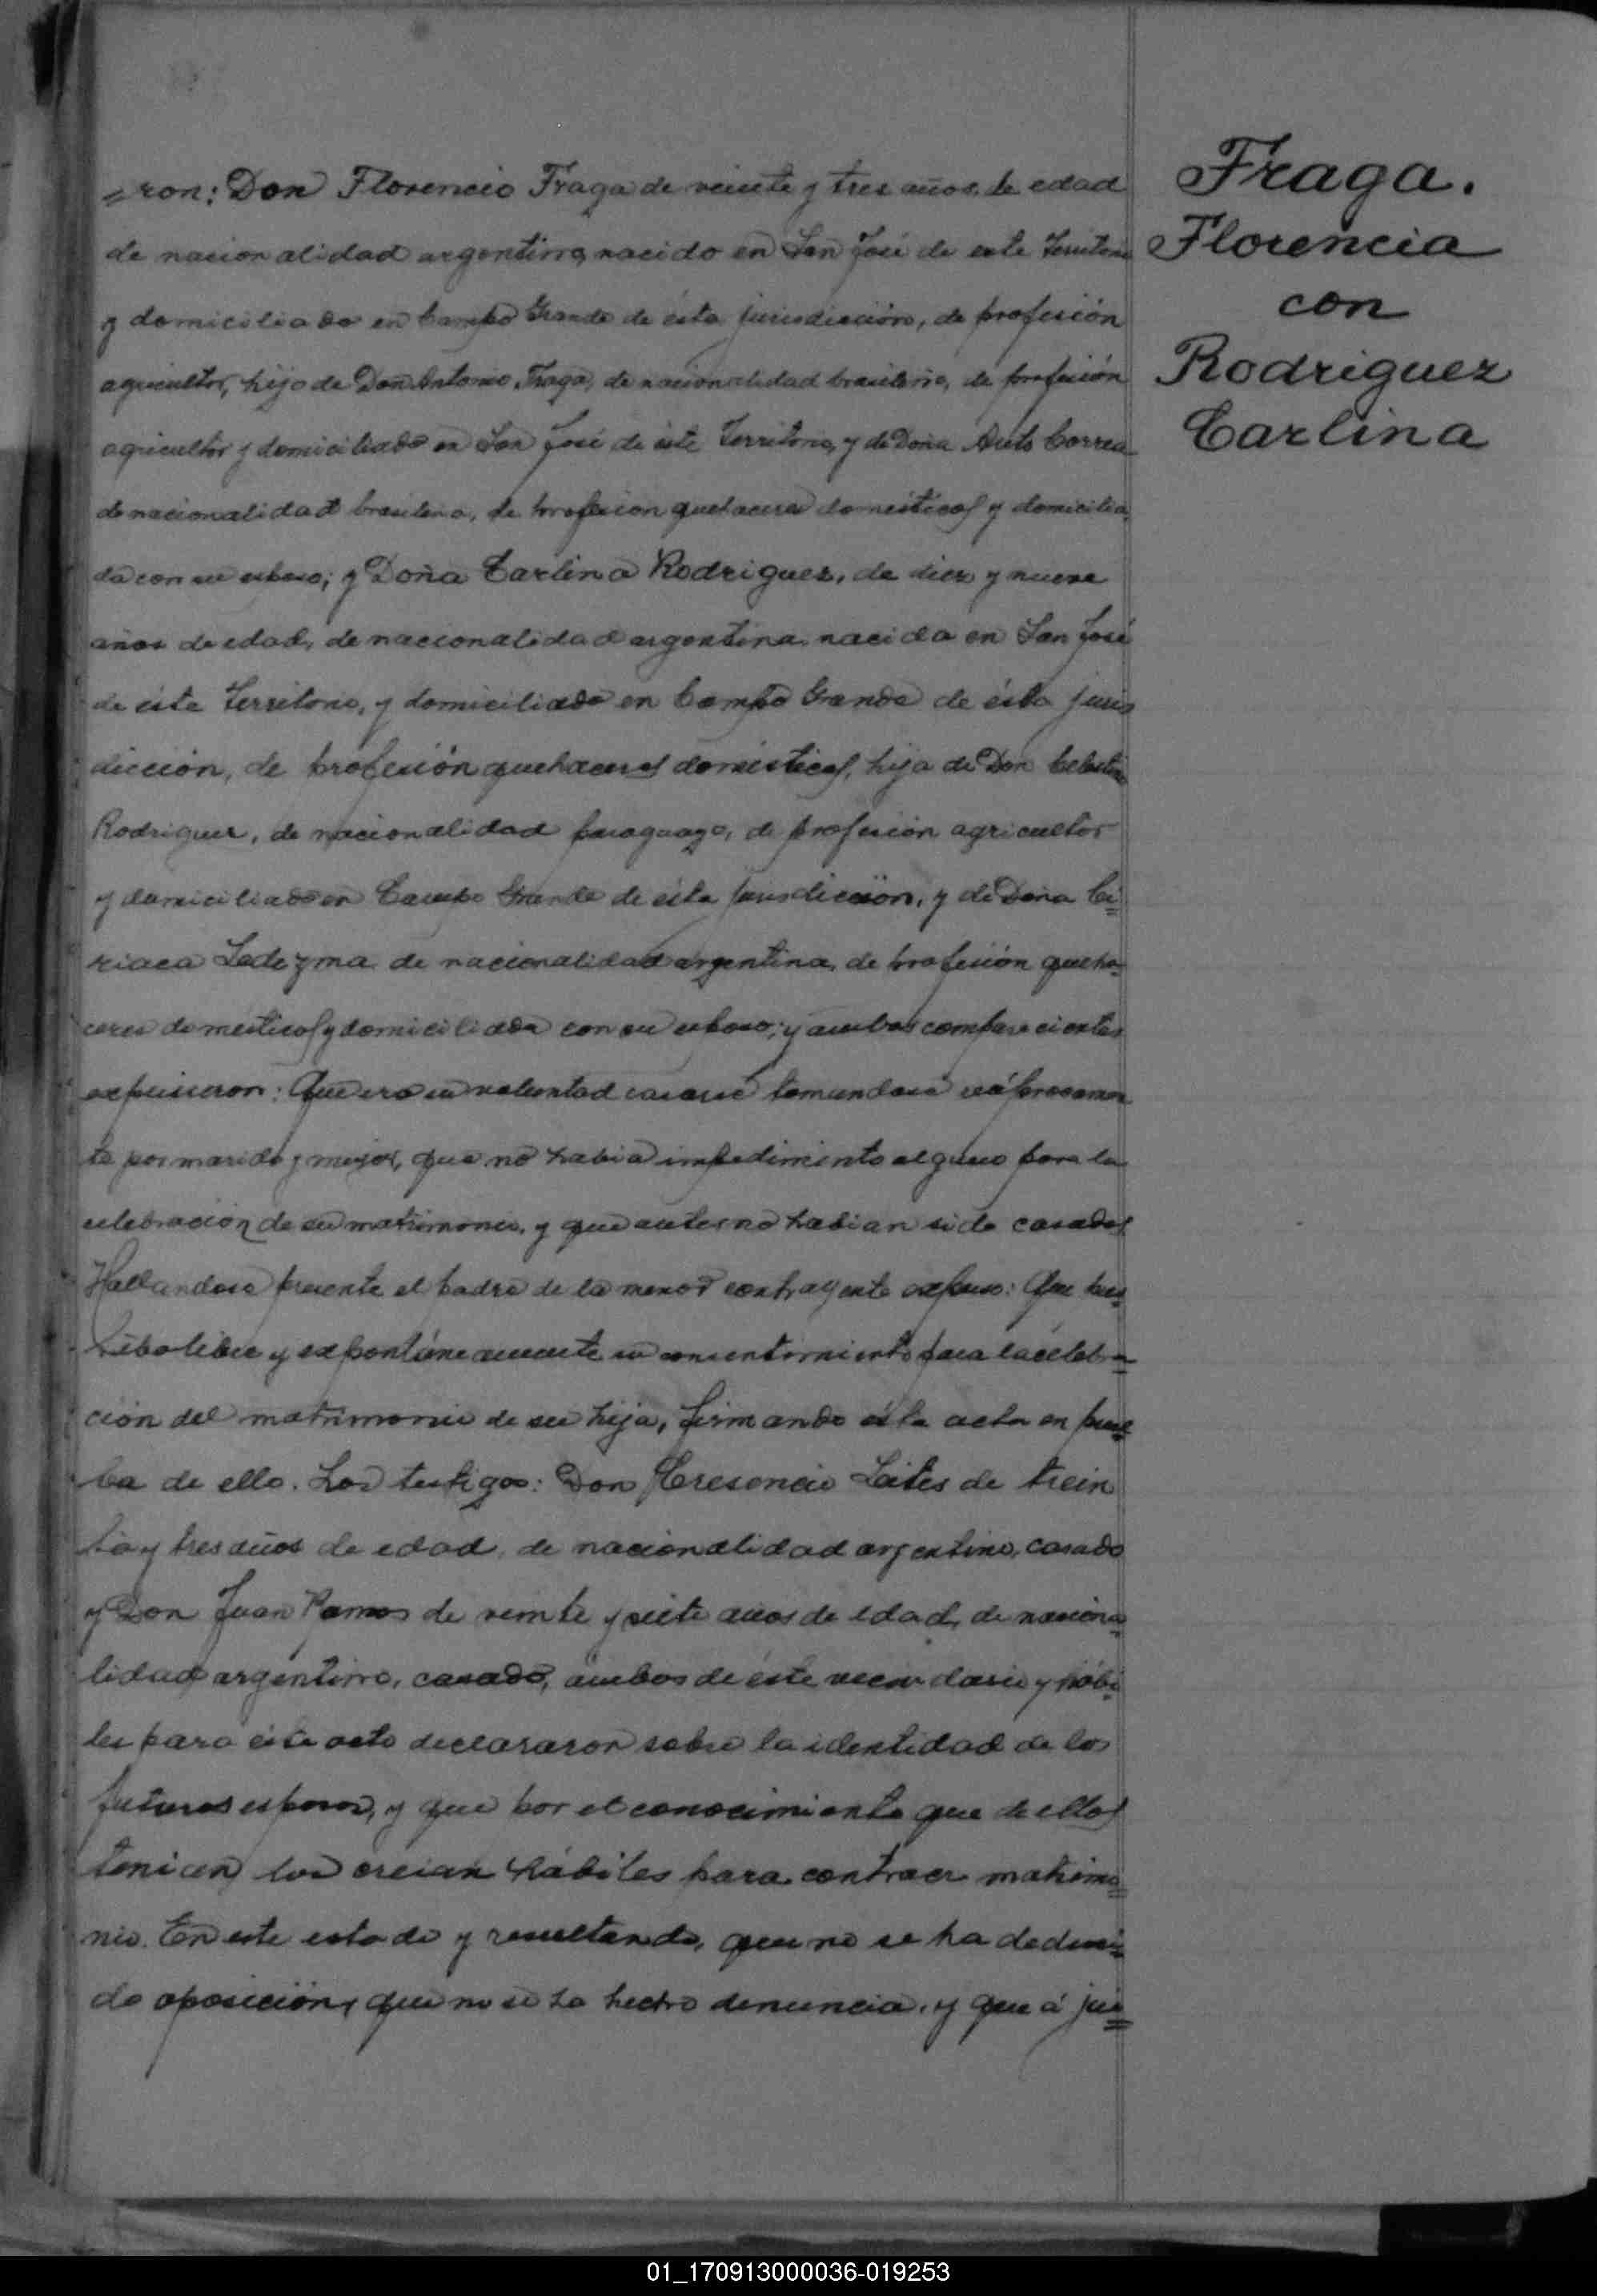 =ron: Don Florencio Fraga de veinte y tres años de edad
de nacionalidad argentino, nacido en San José de este Territorio
y domiciliado en Campo Grande de ésta jurisdicción, de profesión
agricultor, hijo de Don Antonio Fraga, de nacionalidad brasilerio, de profesión
agricultor y domiciliado en San José de éste Territorio, y de Doña Correa
de nacionalidad brasilera, de profesion quehaceres domésticos y domicilia
da con su esposo; y Doña Carlina Rodriguez, de diez y nueve
años de edad, de nacionalidad argentina, nacida en San José
de éste Territorio, y domiciliada en Campo Grande de ésta juris
dicción, de profesión quehaceres domésticos, hija de Don Celestino
Rodriguez, de nacionalidad paraguayo, de profesión agricultor
y domiciliado en Campo Grande de ésta jurisdicción, y de Doña Ci=
riaca Ledezma de nacionalidad argentina, de profesión queha=
ceres domésticos y domiciliada con su esposo; y ambos comparecientes
expusieron: Que era su voluntad casarse tomandose recíprocamen
te por marido y mujer, que no habia impedimento alguno para la
celebración de su matrimonio, y que antes no habian sido casados
Hallandose presente el padre de la menor contrayente expuso: Que pres
taba libre y expontáneamente su consentimiento para la celebra=
ción del matrimonio de su hija, firmando ésta acta en prue=
ba de ello. Los testigos: Don Cresencio Leites de trein
ta y tres años de edad, de nacionalidad argentino, casado
y Don Juan Ramos de veinte y siete años de edad, de naciona=
lidad argentino, casado, ambos de éste vecindario y hábi=
les para éste acto declararon sobre la identidad de los
futuros esposos, y que por el conocimiento que de ellos
tenian los creian hábiles para contraer matrimo=
nio. En este estado y resultando, que no se ha deduci=
do oposición, que no se ha hecho denuncia, y que á jui=
Fraga.
Florencia
con
Rodriguez
Carlina
01_170913000036-019253